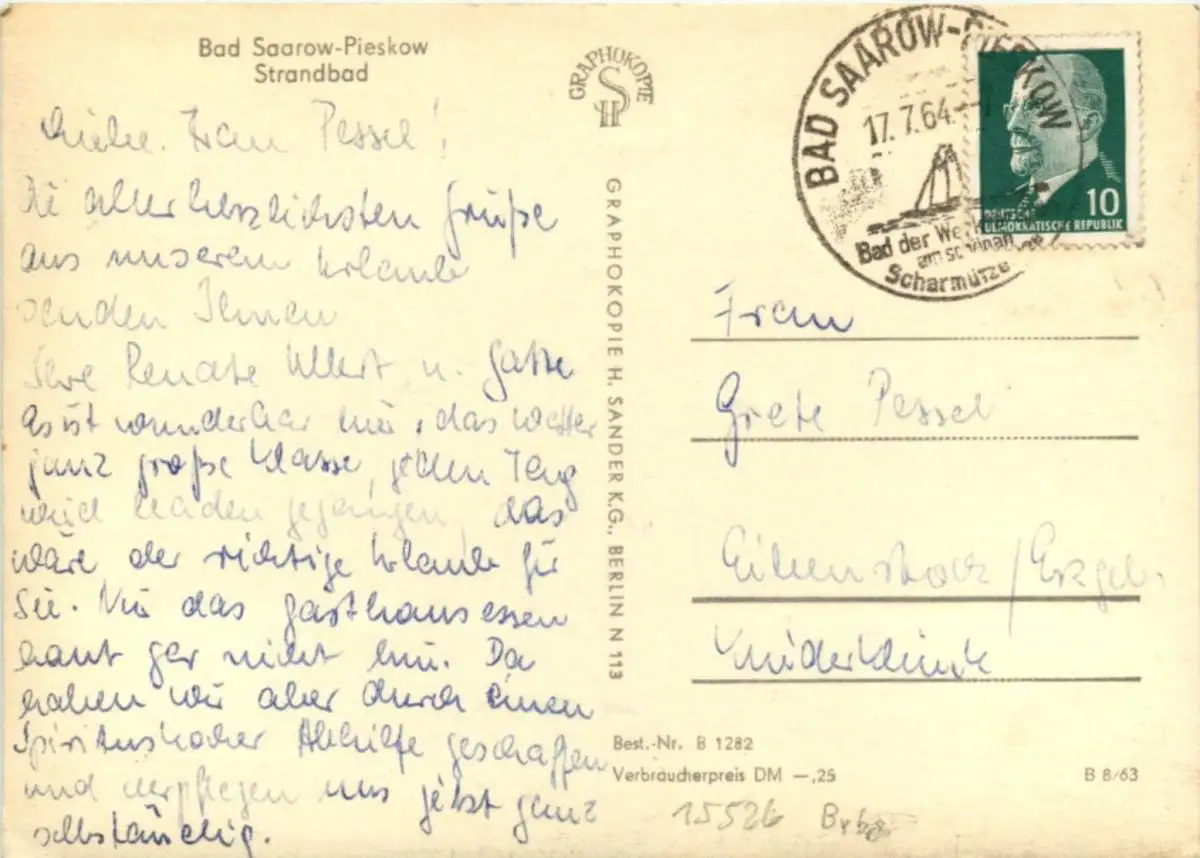 Bad Saarow-Pieskow
Strandbad
Liebe Frau Pessel!
Die allerherzlichsten Grüße
aus unserem Urlaube
senden Ihnen
Ihre Renate Ullert u. Gatte
Es ist wunderbar hier, das Wetter
ganz große Klasse, jeden Tag
wird baden gegangen, das
wäre der richtige Urlaub für
Sie. Nur das Gasthausessen
haut gar nicht hin. Da
haben wir aber durch einen
Spirituskocher Abhilfe geschaffen
und verpflegen uns jetzt ganz
selbständig.
GRAPHOKOPIE
HS
GRAPHOKOPIE H. SANDER K.G., BERLIN N 113
BAD SAAROW-PIESKOW
17.7.64.
Bad der
am
Scharmütze
10
DEUTSCHE
DEMOKRATISCHE REPUBLIK
Frau
Grete Pessel
Eibenstock/Erzgeb.
Kinderklinik
Best.-Nr. B 1282
Verbraucherpreis DM —,25
B 8/63
15526